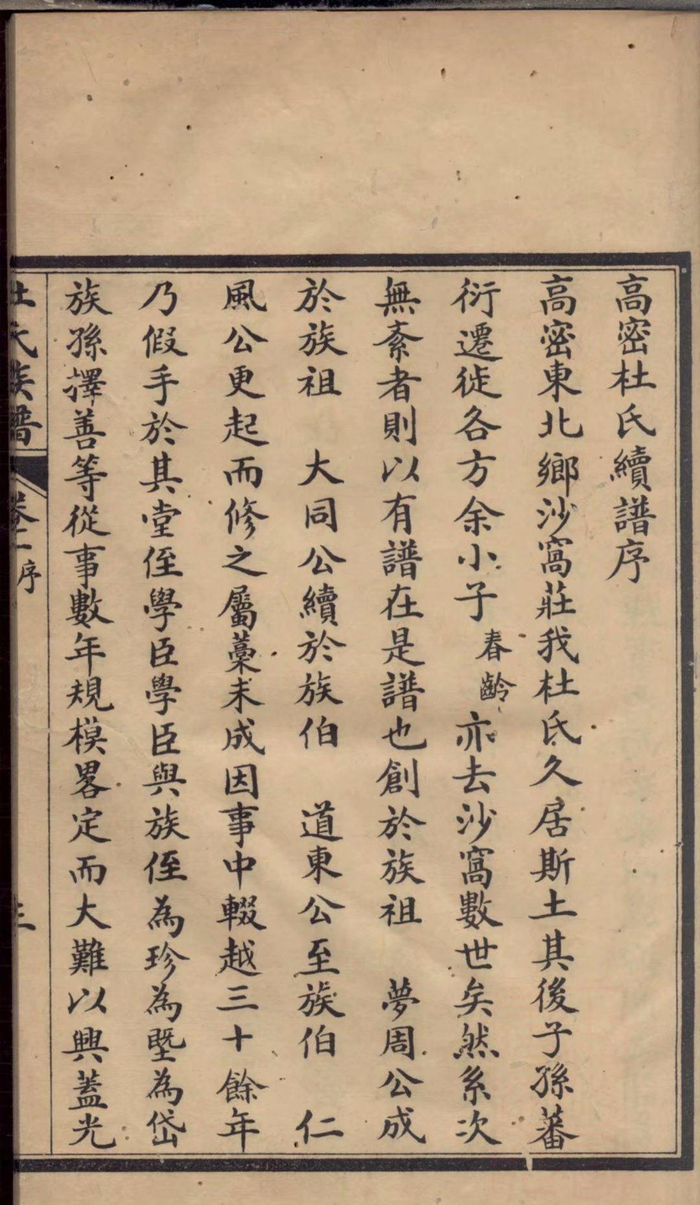 高密杜氏續譜序
高密東北鄉沙窩莊我杜氏久居斯土其後子孫蕃
衍遷徙各方余小子春齡亦去沙窩數世矣然系次
無紊者則以有譜在是譜也創於族祖　夢周公成
於族祖　大同公續於族伯　道東公至族伯　仁
風公更起而修之屬藁未成因事中輟越三十餘年
乃假手於其堂侄學臣學臣與族侄為珍為塈為岱
族孫擇善等從事數年規模畧定而大難以興蓋光
杜氏族譜　卷一序　三